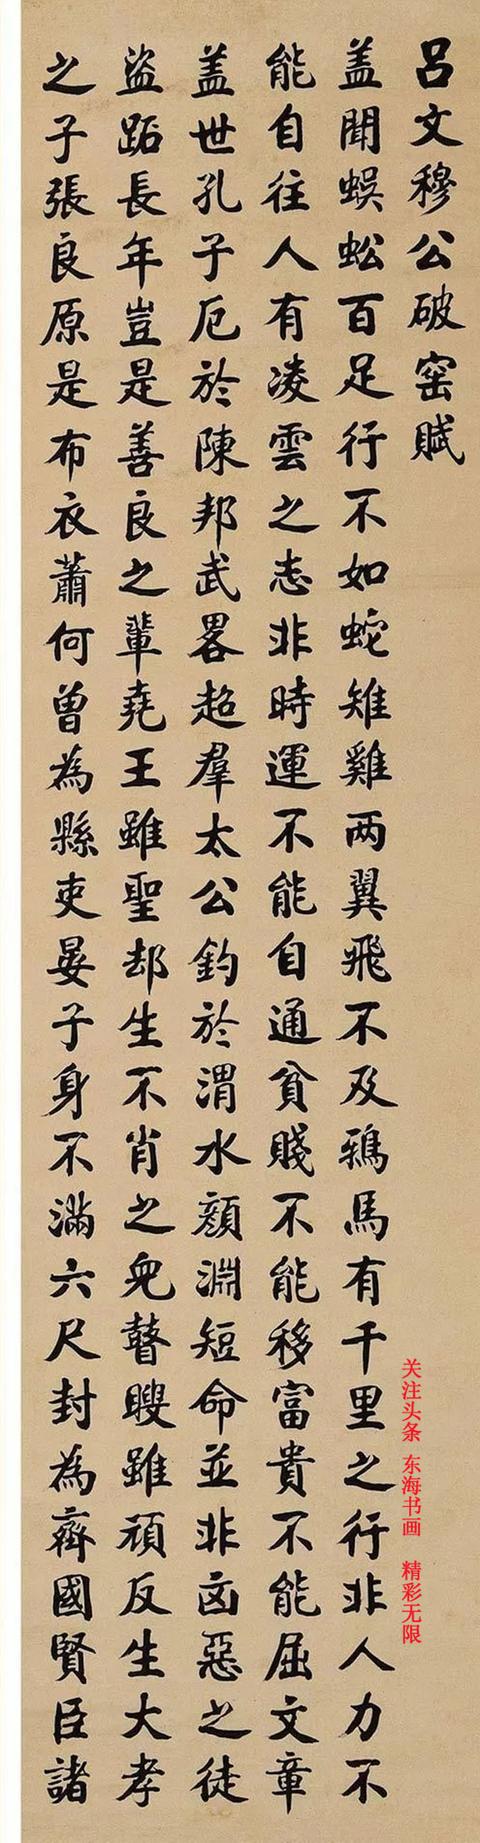 呂文穆公破窑賦
盖聞蜈蚣百足行不如蛇雉雞两翼飛不及鴉馬有千里之行非人力不
能自往人有凌雲之志非時運不能自通貧賤不能移富貴不能屈文章
盖世孔子厄於陳邦武畧超羣太公釣於渭水顔淵短命並非凶惡之徒
盜跖長年豈是善良之輩堯王雖聖却生不肖之兒瞽瞍雖頑反生大孝
之子張良原是布衣蕭何曾為縣吏晏子身不滿六尺封為齊國賢臣諸
关注头条 东海书画 精彩无限